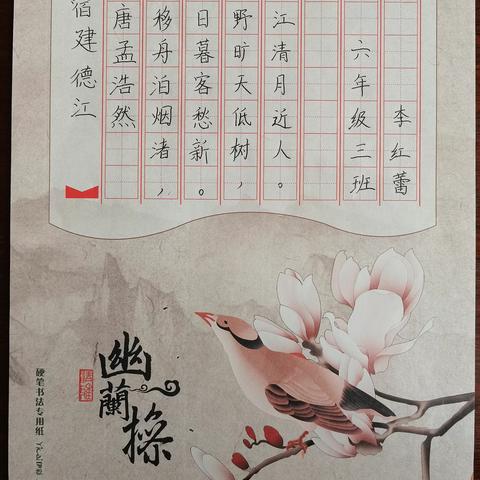 宿建德江
唐孟浩然
移舟泊烟渚，
日暮客愁新。
野旷天低树，
江清月近人。
六年级三班
李红蕾
幽蘭操
硬笔书法专用纸